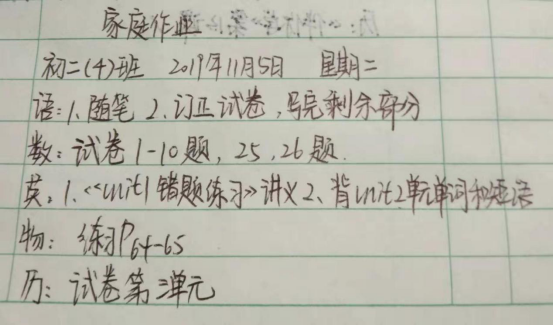 家庭作业
初二(4)班 2019年11月5日 星期二
语:1.随笔 2.订正试卷,写完剩余部分
数:试卷1-10题,25,26题.
英:1.<<unit1错题练习>>讲义2、背unit2单元单词和短语
物:练习P64-65
历:试卷第三单元